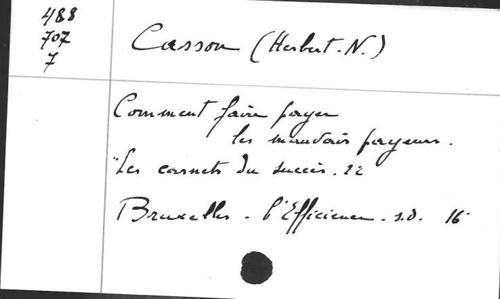 488
707
7
Casson (Herbert-N.)
Comment faire payer
les mauvais payeurs.
"Les carnets du succès. 22
Bruxelles - l'Efficience - s.d. 16°